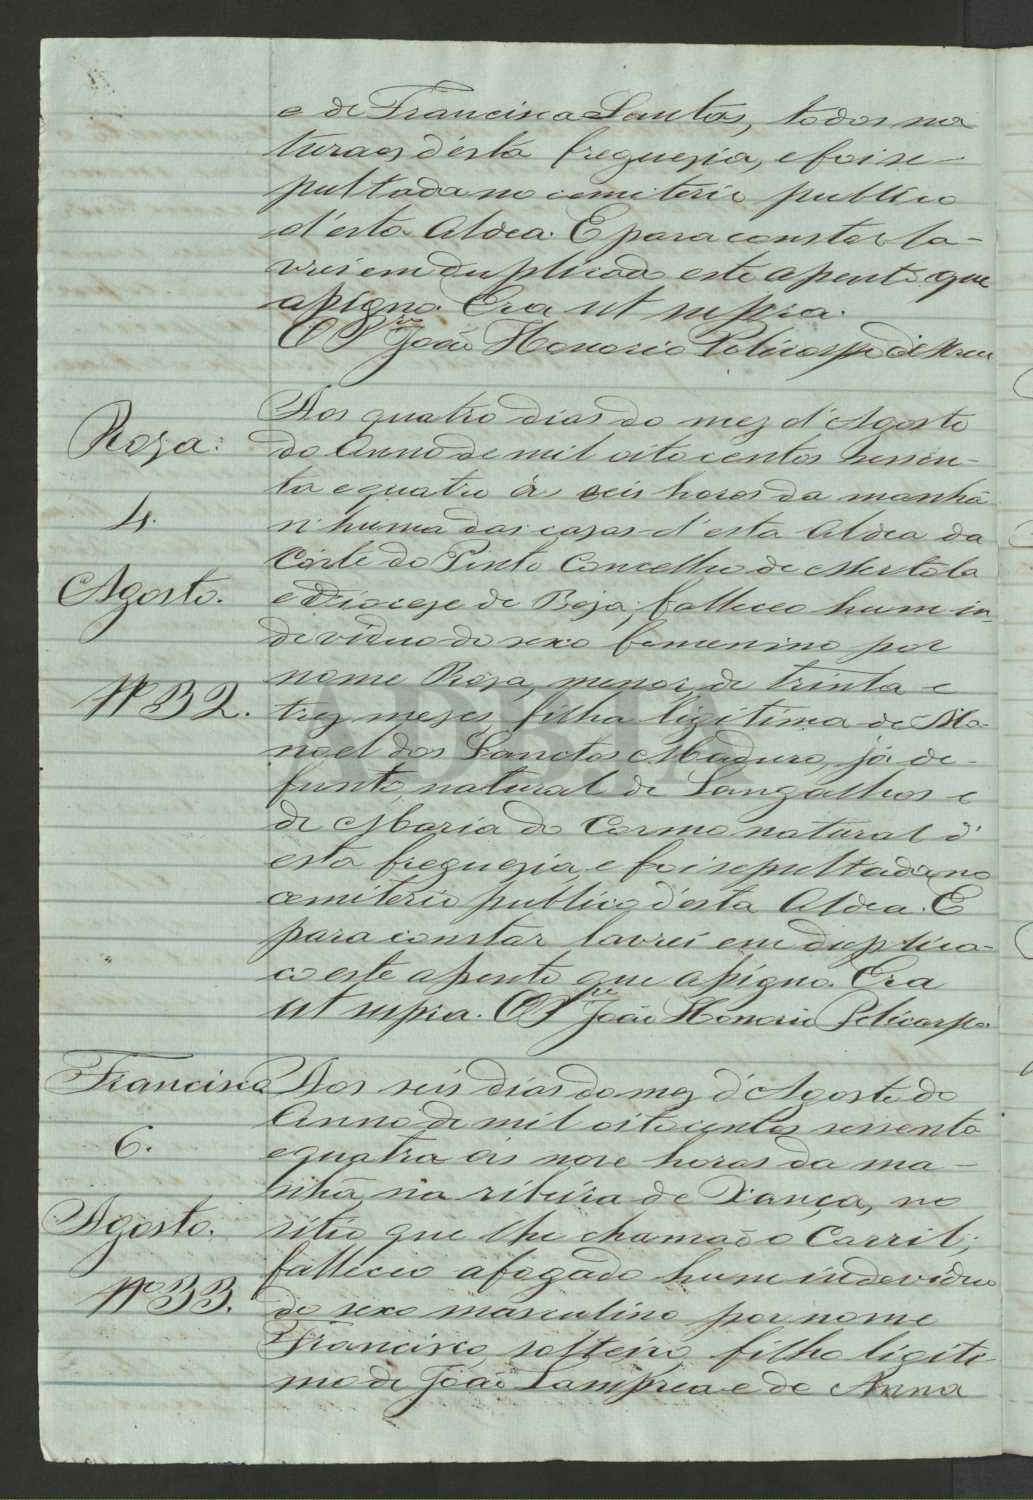 e de Francisca Santos, todos na
turaes d'esta freguezia, e foi se-
pultada no cemiterio publico
d'esta Aldea. E para constar la-
vrei em duplicado este aſsento que
aſsigno. Era ut supra.
O P.ro João Honorio Policarpo
Roza.
4.
Agosto.
Nº 32.
Aos quatro dias do mez d'Agosto
do Anno de mil oito centos sessen-
ta e quatro ás seis horas da manhã
n'huma das cazas d'esta Aldea da
Corte do Pinto Concelho de Mertola
e Diocese de Beja, falleceo hum in-
deviduo do sexo femenino por
nome Roza, menor, de trinta e
trez mezes, filha ligitima de Ma-
noel dos Sanctos Maduro, já de-
funto, natural de Sangalhos e
de Maria do Carmo natural d'
esta freguezia, e foi sepultada no
cemiterio publico d'esta Aldea. E
para constar lavrei em duplica-
co este aſsento que aſsigno. Era
ut supra. O P.ro João Honorio Policarpo
Francisco
6.
Agosto.
Nº 33.
Aos seis dias do mez d'Agosto do
Anno de mil oito centos sessenta
e quatro ás nove horas da ma-
nhã, na ribeira de Xança, no
sitio que lhe chamão o Carril;
falleceo afogado hum indeviduo
do sexo masculino por nome
Francisco, solteiro filho ligiti
mo de João Lampreia e de Anna
ADBJA